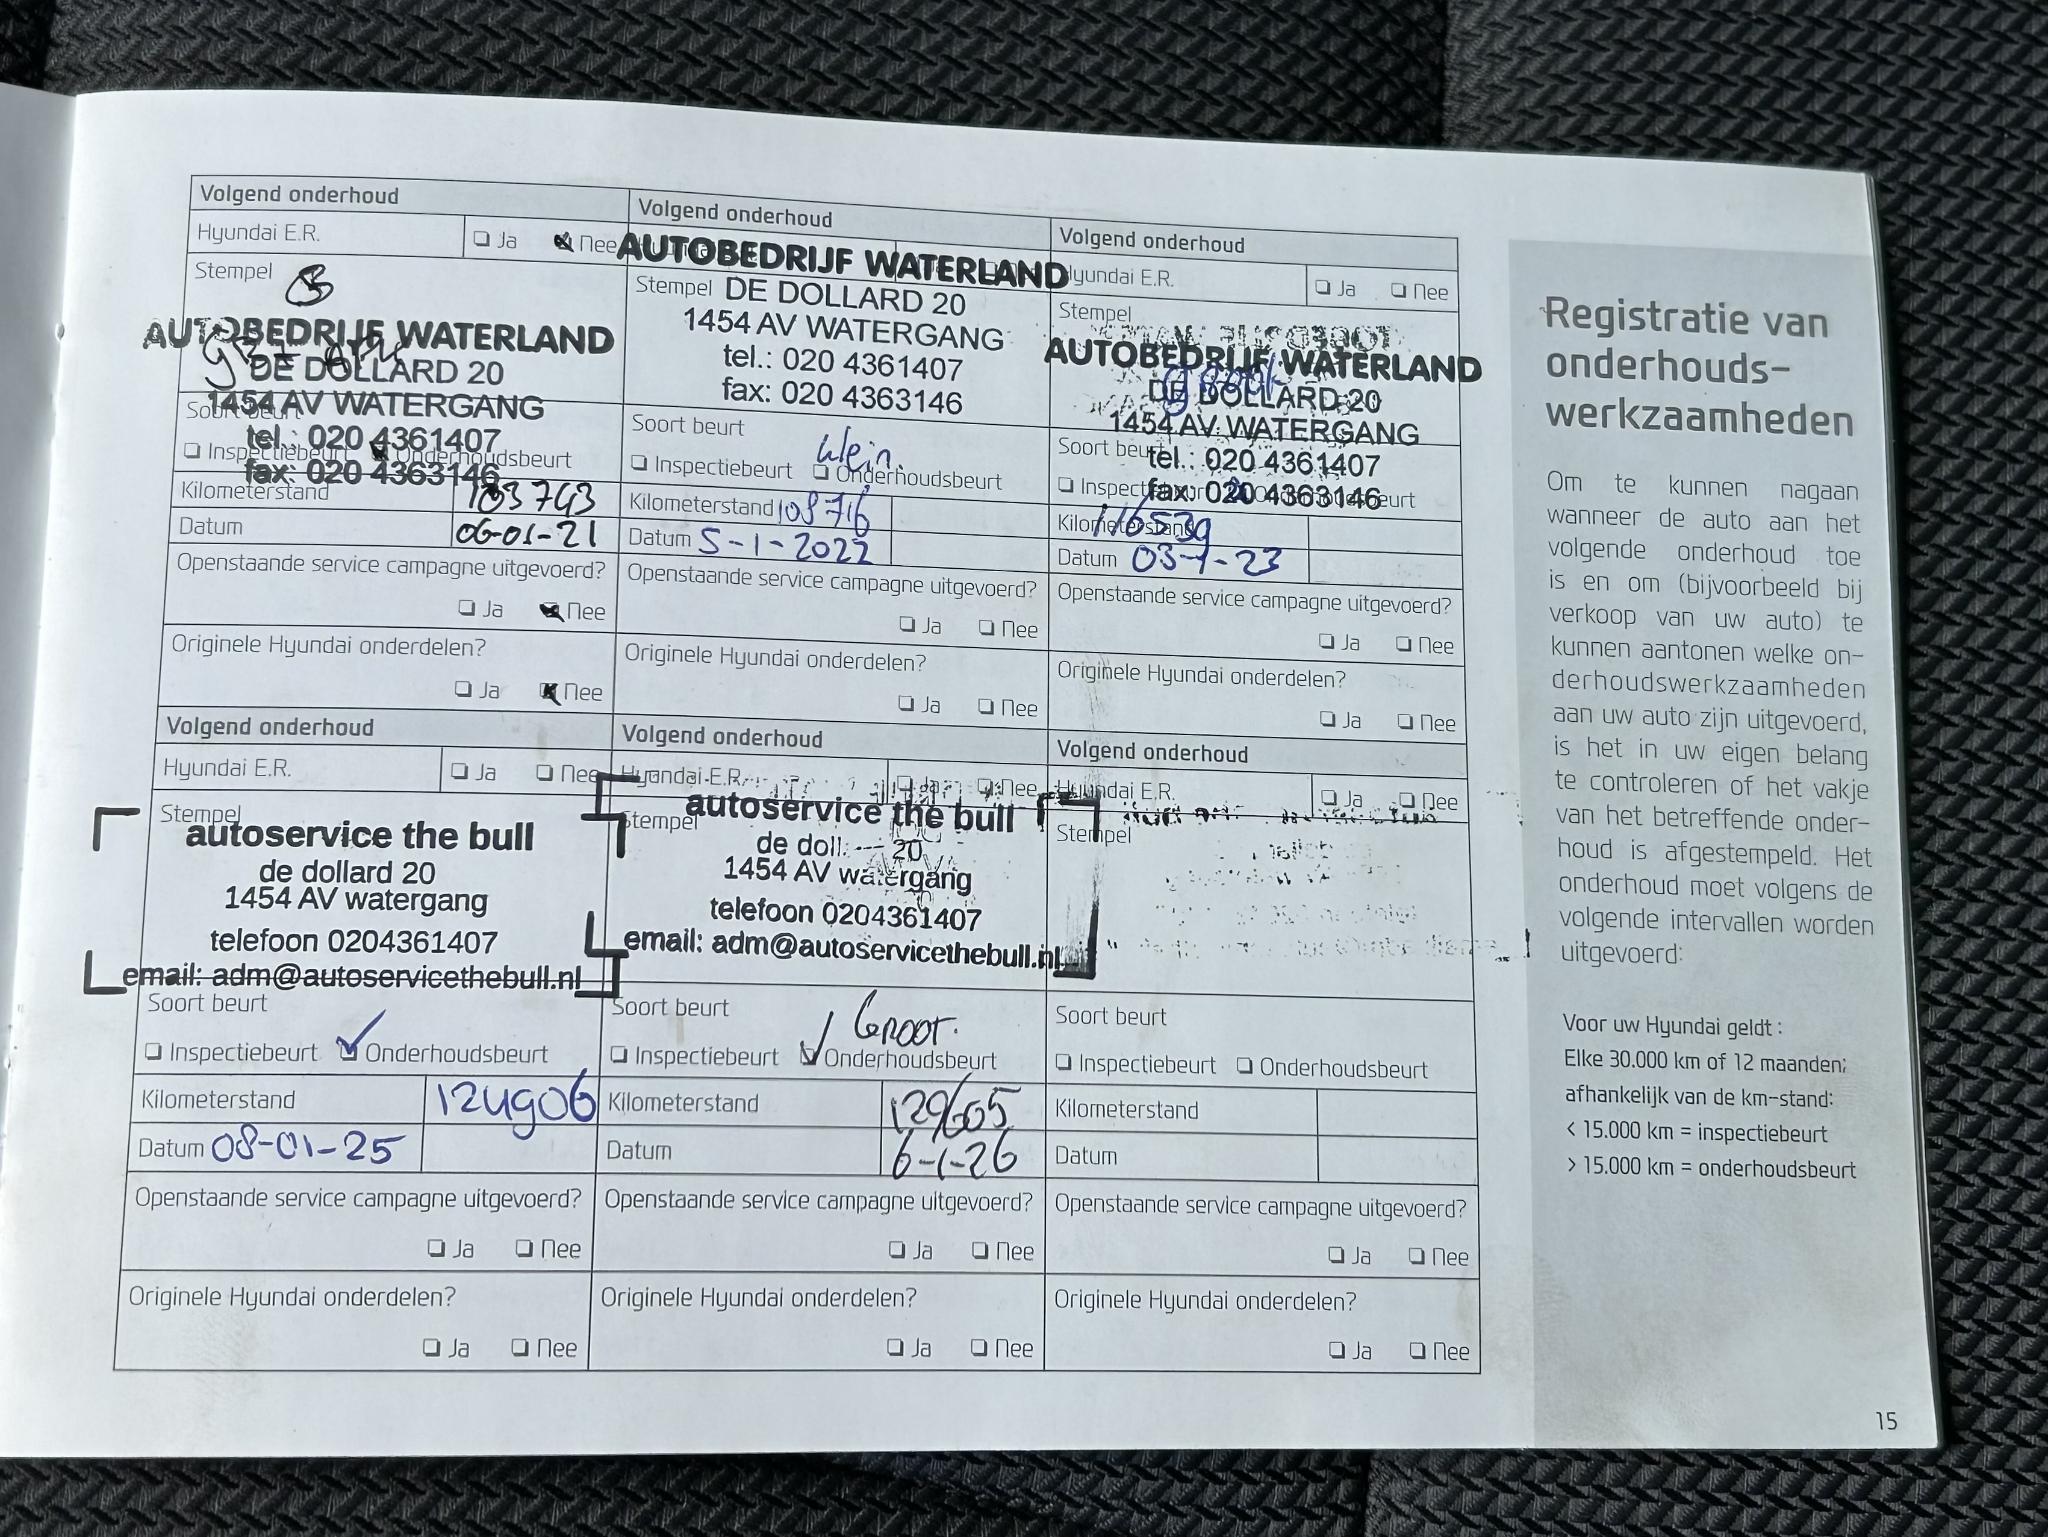 Volgend onderhoud
Hyundai E.R. Ja Nee
Stempel
AUTOBEDRIJF WATERLAND
DE DOLLARD 20
1454 AV WATERGANG
tel.: 020 4361407
fax: 020 4363146
Soort beurt
Inspectiebeurt Onderhoudsbeurt
Kilometerstand 103743
Datum 06-01-21
Openstaande service campagne uitgevoerd?
Ja Nee
Originele Hyundai onderdelen?
Ja Nee
Volgend onderhoud
AUTOBEDRIJF WATERLAND
Stempel DE DOLLARD 20
1454 AV WATERGANG
tel.: 020 4361407
fax: 020 4363146
Soort beurt
klein.
Inspectiebeurt Onderhoudsbeurt
Kilometerstand 108716
Datum 5-1-2022
Openstaande service campagne uitgevoerd?
Ja Nee
Originele Hyundai onderdelen?
Ja Nee
Volgend onderhoud
Hyundai E.R. Ja Nee
Stempel
AUTOBEDRIJF WATERLAND
DE DOLLARD 20
1454 AV WATERGANG
Soort beurt tel.: 020 4361407
Inspectiebeurt Onderhoudsbeurt
fax: 020 4363146
Kilometerstand 116539
Datum 03-1-23
Openstaande service campagne uitgevoerd?
Ja Nee
Originele Hyundai onderdelen?
Ja Nee
Volgend onderhoud
Hyundai E.R. Ja Nee
Stempel
autoservice the bull
de dollard 20
1454 AV watergang
telefoon 0204361407
email: adm@autoservicethebull.nl
Soort beurt
Inspectiebeurt Onderhoudsbeurt
Kilometerstand 124906
Datum 08-01-25
Openstaande service campagne uitgevoerd?
Ja Nee
Originele Hyundai onderdelen?
Ja Nee
Volgend onderhoud
Hyundai E.R. Ja Nee
Stempel
autoservice the bull
de doll 20
1454 AV watergang
telefoon 0204361407
email: adm@autoservicethebull.nl
Soort beurt
Groot.
Inspectiebeurt Onderhoudsbeurt
Kilometerstand 129605
Datum 6-1-26
Openstaande service campagne uitgevoerd?
Ja Nee
Originele Hyundai onderdelen?
Ja Nee
Volgend onderhoud
Hyundai E.R. Ja Nee
Stempel
Soort beurt
Inspectiebeurt Onderhoudsbeurt
Kilometerstand
Datum
Openstaande service campagne uitgevoerd?
Ja Nee
Originele Hyundai onderdelen?
Ja Nee
Registratie van
onderhouds-
werkzaamheden
Om te kunnen nagaan
wanneer de auto aan het
volgende onderhoud toe
is en om (bijvoorbeeld bij
verkoop van uw auto) te
kunnen aantonen welke on-
derhoudswerkzaamheden
aan uw auto zijn uitgevoerd,
is het in uw eigen belang
te controleren of het vakje
van het betreffende onder-
houd is afgestempeld. Het
onderhoud moet volgens de
volgende intervallen worden
uitgevoerd:
Voor uw Hyundai geldt :
Elke 30.000 km of 12 maanden;
afhankelijk van de km-stand:
< 15.000 km = inspectiebeurt
> 15.000 km = onderhoudsbeurt
15